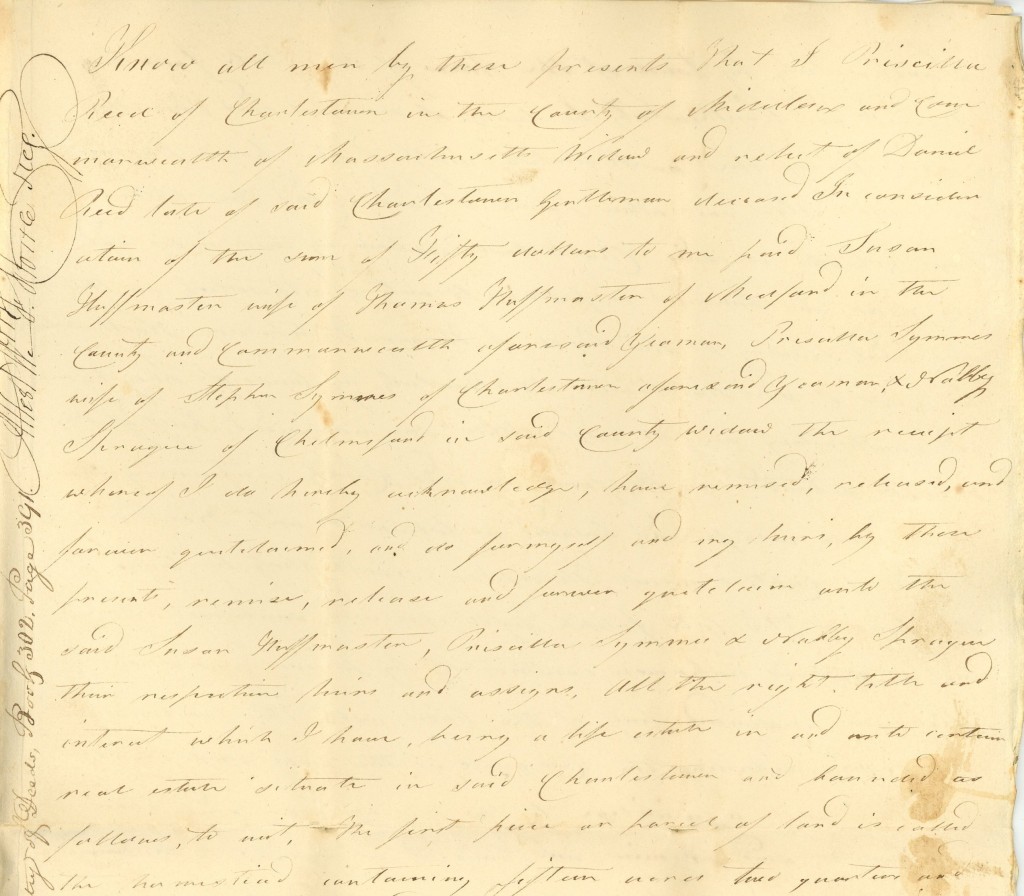 Know all men by these presents That I Priscilla
Reed of Charlestown in the County of Middlesex and Com
monwealth of Massachusetts Widow and relict of Daniel
Reed late of said Charlestown Gentleman deceased In consider
ation of the sum of Fifty dollars to me paid Susan
Huffmaster wife of Thomas Huffmaster of Medford in the
County and Commonwealth aforesaid Yeoman, Priscilla Symmes
wife of Stephen Symmes of Charlestown aforesaid Yeoman, & Nabby
Sprague of Chelmsford in said County widow the receipt
whereof I do hereby acknowledge, have remised, released, and
forever quitclaimed, and do for myself and my heirs, by these
presents, remise, release and forever quitclaim unto the
said Susan Huffmaster, Priscilla Symmes & Nabby Sprague
their respective heirs and assigns, All the right, title and
interest which I have, being a life estate in and unto certain
real estate situate in said Charlestown and bounded as
follows, to wit, The first piece or parcel of land is called
the homestead containing fifteen acres two quarters and
of Deeds, Book 302. Page 391. Attest